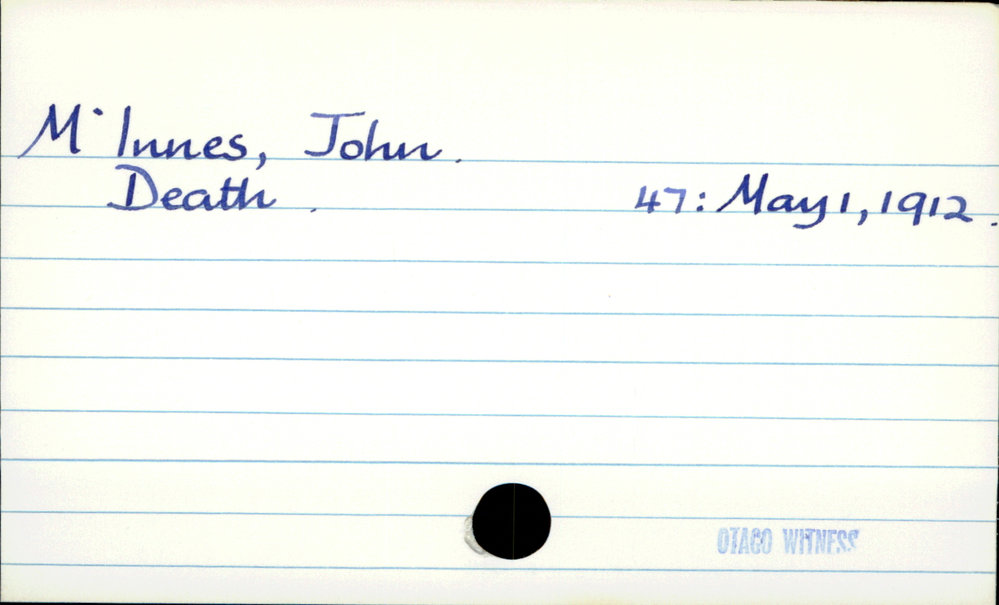 M' Innes, John.
Death. 47: May 1, 1912.
OTAGO WITNESS